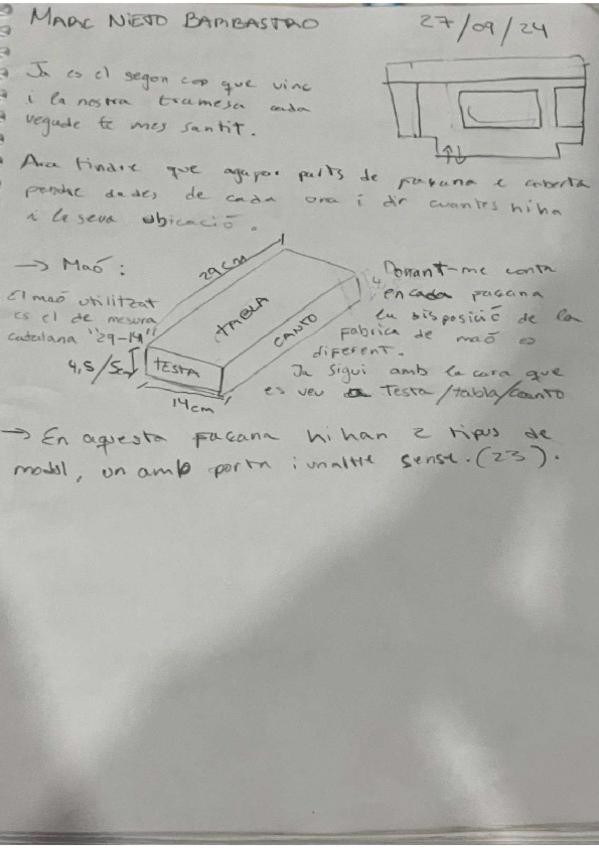 MARC NIETO BAMBASTRO
27/09/24
Ja es el segon cop que vinc
i la nostra tramesa cada
vegade te mes santit.
Ara tindre que agafar parts de façana e coberta
pendre dades de cada una i dir cuantes hiha
i le seva ubicació.
→ Maó:
El maó utilitzat
es el de mesura
catalana "29-14"
29cm
TABLA
CANTO
TESTA
4,5/5cm
14cm
4
Donant-me conta
en cada façana
la disposició de la
fabrica de maó es
diferent.
Ja sigui amb la cara que
es veu Testa/tabla/canto
→ En aquesta façana hihan 2 tipus de
modul, un amb porta i unaltre sense. (23).